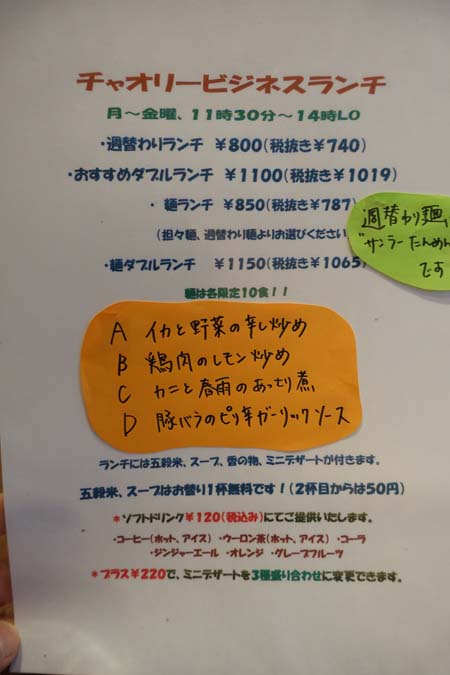 チャオリービジネスランチ
月～金曜、11時30分～14時LO
・週替わりランチ ￥800(税抜き￥740)
・おすすめダブルランチ ￥1100(税抜き￥1019)
・麺ランチ ￥850(税抜き￥787)
(担々麺、週替わり麺よりお選びください
・麺ダブルランチ ￥1150(税抜き￥1065)
麺は各限定10食！！
週替わり麺、
"サンラータンめん
です
A イカと野菜の辛し炒め
B 鶏肉のレモン炒め
C カニと春雨のあっさり煮
D 豚バラのピリ辛ガーリックソース
ランチには五穀米、スープ、香の物、ミニデザートが付きます。
五穀米、スープはお替り1杯無料です！(2杯目からは50円)
*ソフトドリンク￥120(税込み)にてご提供いたします。
・コーヒー(ホット、アイス) ・ウーロン茶(ホット、アイス) ・コーラ
・ジンジャーエール ・オレンジ ・グレープフルーツ
*プラス￥220で、ミニデザートを3種盛り合わせに変更できます。